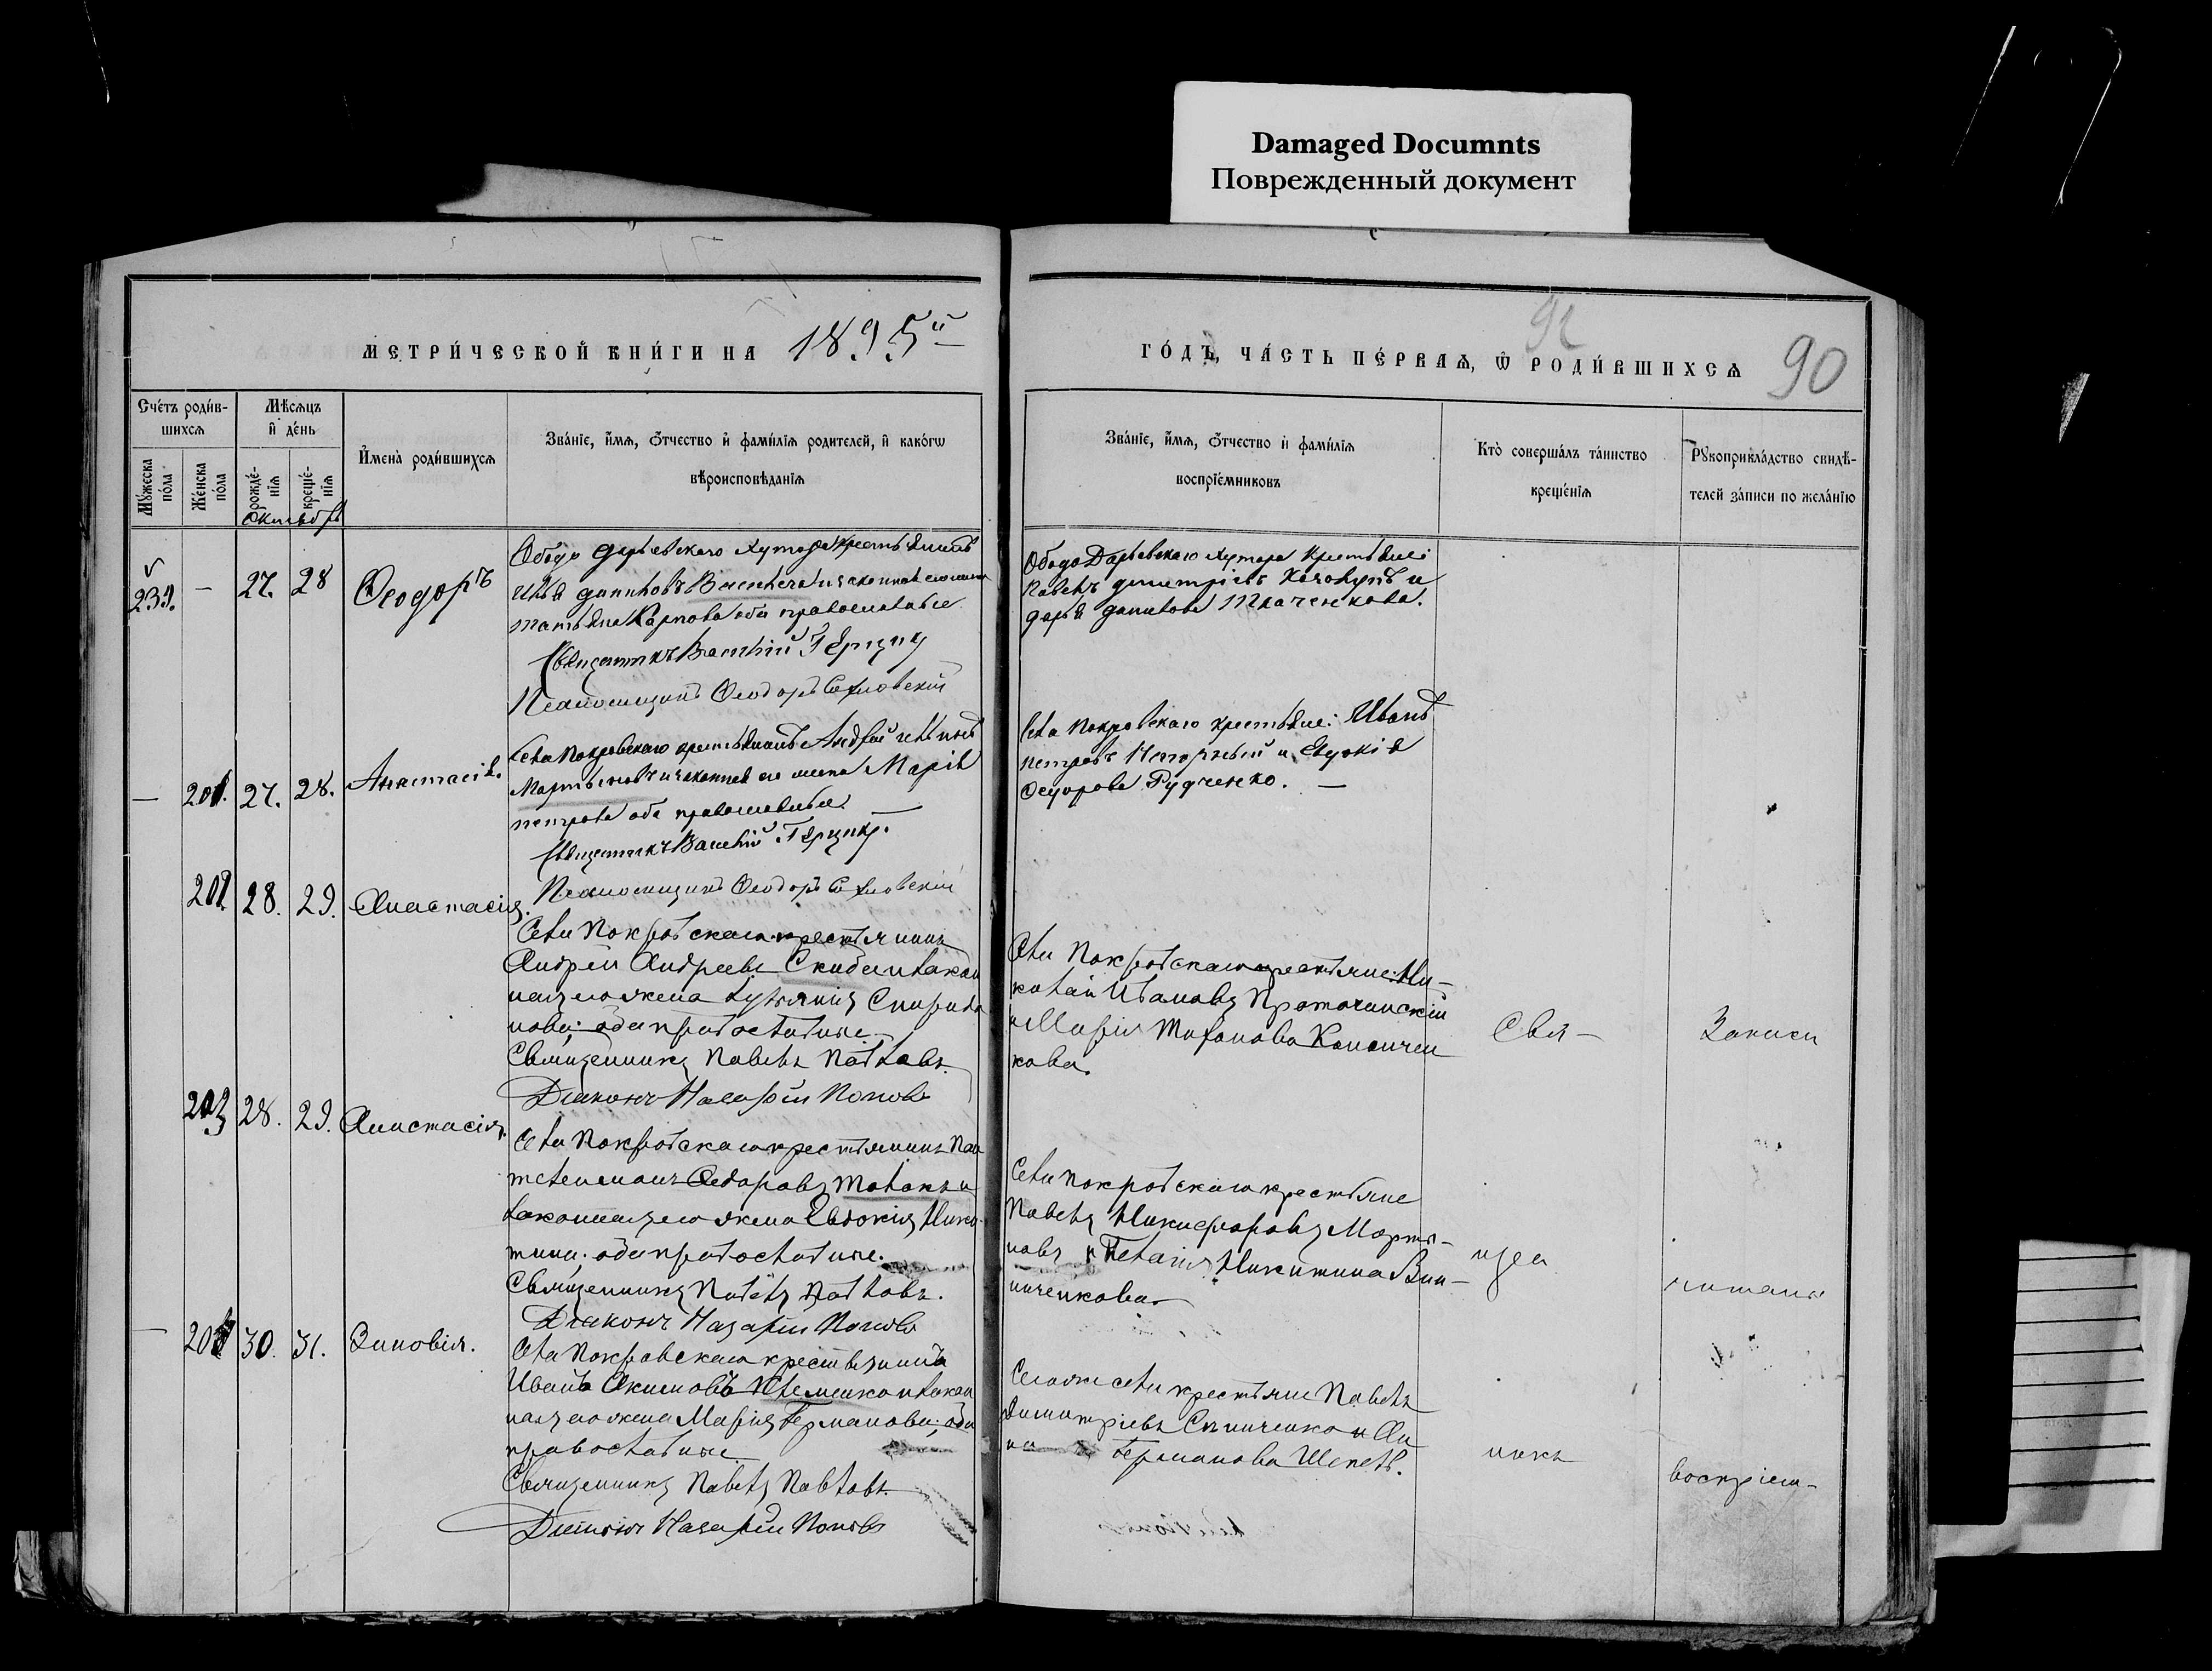 Damaged Documnts
Поврежденный документ
МЕТРИ́ЧЕСКОЙ КНИ́ГИ НА 1895й
ГО́ДЪ, ЧА́СТЬ ПЕ́РВАѦ, Ѽ РОДИ́ВШИХСѦ
90
Сче́тъ роди́в-
шихсѧ
Мѣсѧцъ
и҆ де́нь
Мꙋ́жеска
по́ла
Же́нска
по́ла
рожде́-
нїѧ
креще́-
нїѧ
Октябрь
И҆мена̀ роди́вшихсѧ
Зва́нїе, и҆́мѧ, ѻ҆́тчество и҆ фами́лїѧ родителей, и҆ како́гѡ
вѣроисповѣ́данїѧ
Зва́нїе, и҆́мѧ, ѻ҆́тчество и҆ фами́лїѧ
воспрїе́мниковъ
Кто̀ соверша́лъ та́инство
креще́нїѧ
Рꙋкоприкла́дство свидѣ́-
телей за́писи по жела́нїю
239. — 27. 28 Ѳеодоръ
Ободо Дарьевскаго хутора крестьянинъ
Илья Даниловъ и законная его жена
Татьяна Карпова оба православные
Священникъ Василій Герцикъ
Псаломщикъ Ѳеодоръ
Ободо Дарьевскаго хутора крестьяне:
Павелъ Димитріевъ и
Дарья Данилова Ткаченкова.
— 201. 27. 28. Анастасія.
Села Покровскаго крестьянинъ Андрей
Мартыновъ и законная его жена Марія
Петрова оба православные —
Священникъ Василій Герцикъ.
Псаломщикъ Ѳеодоръ
Села Покровскаго крестьяне: Иванъ
Петровъ и Евдокія
Ѳедорова Рудченко. —
202. 28. 29. Анастасія.
Села Покровскаго крестьянинъ
Андрей Андреевъ Скиба и закон
ная его жена Спиридо
нова; оба православные.
Священникъ Павелъ Павловъ.
Діаконъ Назарій Поповъ
Села Покровскаго крестьяне: Ни-
колай Ивановъ Проточинскій
и Марія
кова.
Свя-
Записи
203 28. 29. Анастасія.
Села Покровскаго крестьянинъ Пан
телеимонъ Ѳедоровъ и
законная его жена Евдокія Ники
тина; оба православные.
Священникъ Павелъ Павловъ.
Діаконъ Назарій Поповъ
Села Покровскаго крестьяне
Павелъ Никифоровъ Марты-
новъ и Пелагія Никитина Вин-
ниченкова.
щен
читали
— 204 30. 31. Зиновія.
Села Покровскаго крестьянинъ
Иванъ Акимовъ и закон
ная его жена Марія Германова; оба
православные
Священникъ Павелъ Павловъ.
Діаконъ Назарій Поповъ
Того же села крестьяне Павелъ
Димитріевъ и Ан
на Германова
никъ
воспріем-